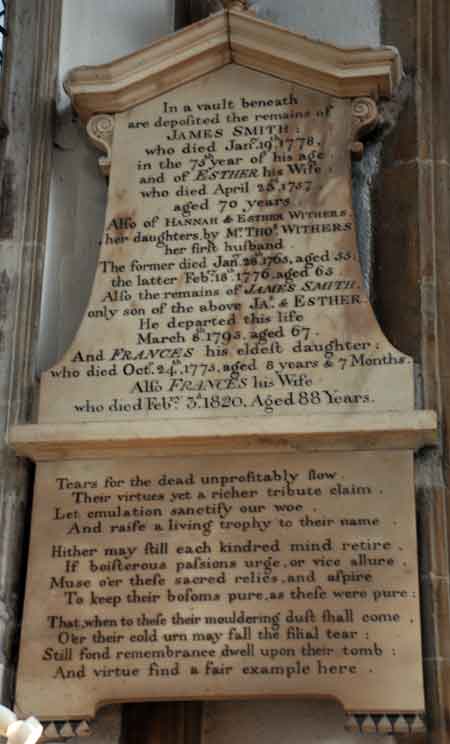 In a vault beneath
are depoſited the remains of
JAMES SMITH :
who died Janʸ. 19ᵗʰ 1778,
in the 75ᵗʰ year of his age
and of ESTHER his Wife :
who died April 25ᵗʰ 1757
aged 70 years
Alſo of HANNAH & ESTHER WITHERS.
her daughters, by Mʳ. THOˢ. WITHERS
her firſt huſband .
The former died Jan. 26ᵗʰ 1765, aged 55:
the latter Febʸ. 18ᵗʰ 1776, aged 65
Alſo the remains of JAMES SMITH.
only son of the above JAˢ. & ESTHER.
He departed this life
March 8ᵗʰ 1795, aged 67 .
And FRANCES his eldeſt daughter :
who died Octʳ. 24ᵗʰ, 1773, aged 8 years & 7 Months.
Alſo FRANCES his Wife
who died Febʸ. 3ᵈ. 1820, Aged 88 Years.
Tears for the dead unprofitably flow .
Their virtues yet a richer tribute claim .
Let emulation sanctify our woe .
And raiſe a living trophy to their name .
Hither may ſtill each kindred mind retire .
If boiſterous paſsions urge, or vice allure .
Muse o'er theſe sacred relics, and aſpire
To keep their boſoms pure, as theſe were pure :
That, when to theſe their mouldering duſt ſhall come ,
O'er their cold urn may fall the filial tear :
Still fond remembrance dwell upon their tomb :
And virtue find a fair example here .